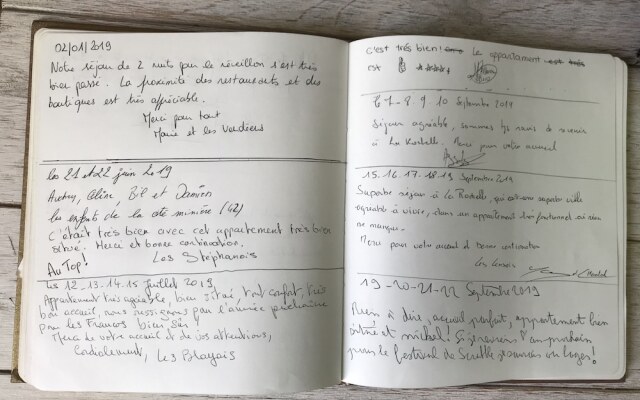 02/01/2019
Notre séjour de 2 nuits pour le réveillon s'est très
bien passé. La proximité des restaurants et des
boutiques est très appréciable.
Merci pour tout
Marie et les Vendéens
les 21 et 22 juin 2019
Audrey, Céline, Bil et Damien
les enfants de la cité minière (42)
C'était très bien avec cet appartement très bien
situé. Merci et bonne continuation.
Au Top! Les Stéphanois
Les 12.13.14.15 Juillet 2019
Appartement très agréable, bien situé tout confort, très
bon accueil, nous ressignons pour l'année prochaine
pour les Francos bien sûr
Merci de votre accueil et de vos attentions,
Cordialement, Les Blayais
C'est très bien! Le appartement
est
8. 9. 10 Septembre 2019
Séjour agréable, sommes de venir
à La Rochelle. Merci pour votre accueil
15.16.17.18.19 Septembre 2019
Superbe séjour à La Rochelle, qui est une superbe ville
agréable à vivre, dans un appartement très fonctionnel où rien
ne manque.
Merci pour votre accueil et bonne continuation
Les
19-20-21-22 Septembre 2019
Rien à dire, accueil parfait, appartement bien
situé et nickel! Si je reviens l'an prochain
pour le festival de je saurais où loger!